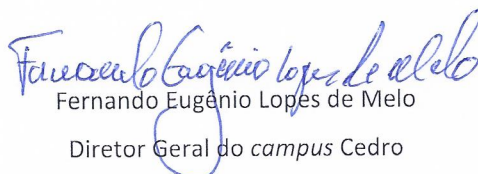 Fernando Eugênio Lopes de Melo
Fernando Eugênio Lopes de Melo
Diretor Geral do campus Cedro